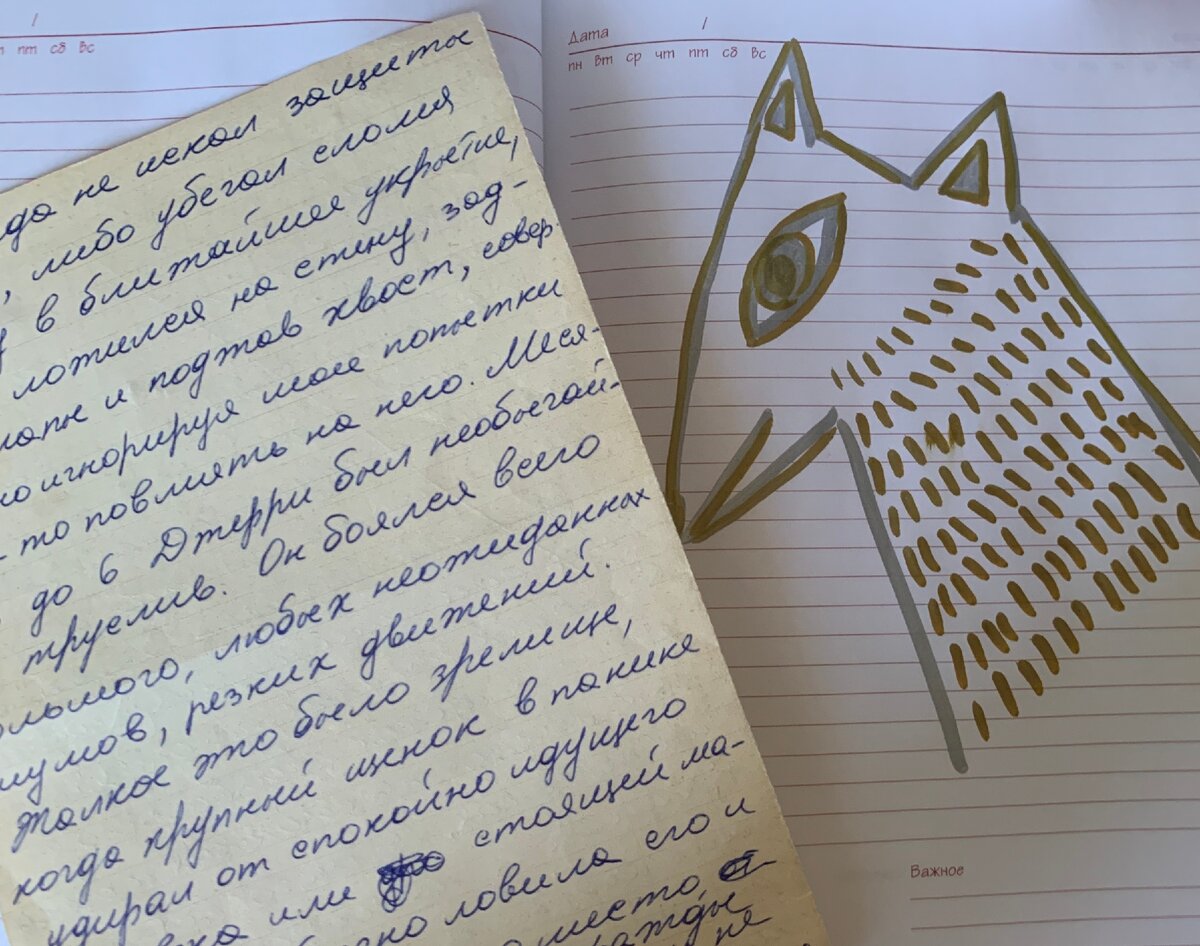 /
пт сб вс
Дата /
пн вт ср чт пт сб вс
не искал защиты
, либо убегал сломя
в ближайшее укрытие,
ложился на спину, зад-
лапы и поджав хвост, совер-
но игнорируя мои попытки
то повлиять на него. Меся-
до 6 Джерри был необычай-
труслив. Он боялся всего
любых неожиданных
шумов, резких движений.
Жалкое это было зрелище,
когда крупный щенок в панике
удирал от спокойно идущего
или стоящей ма-
ловила его и
место,
Важное